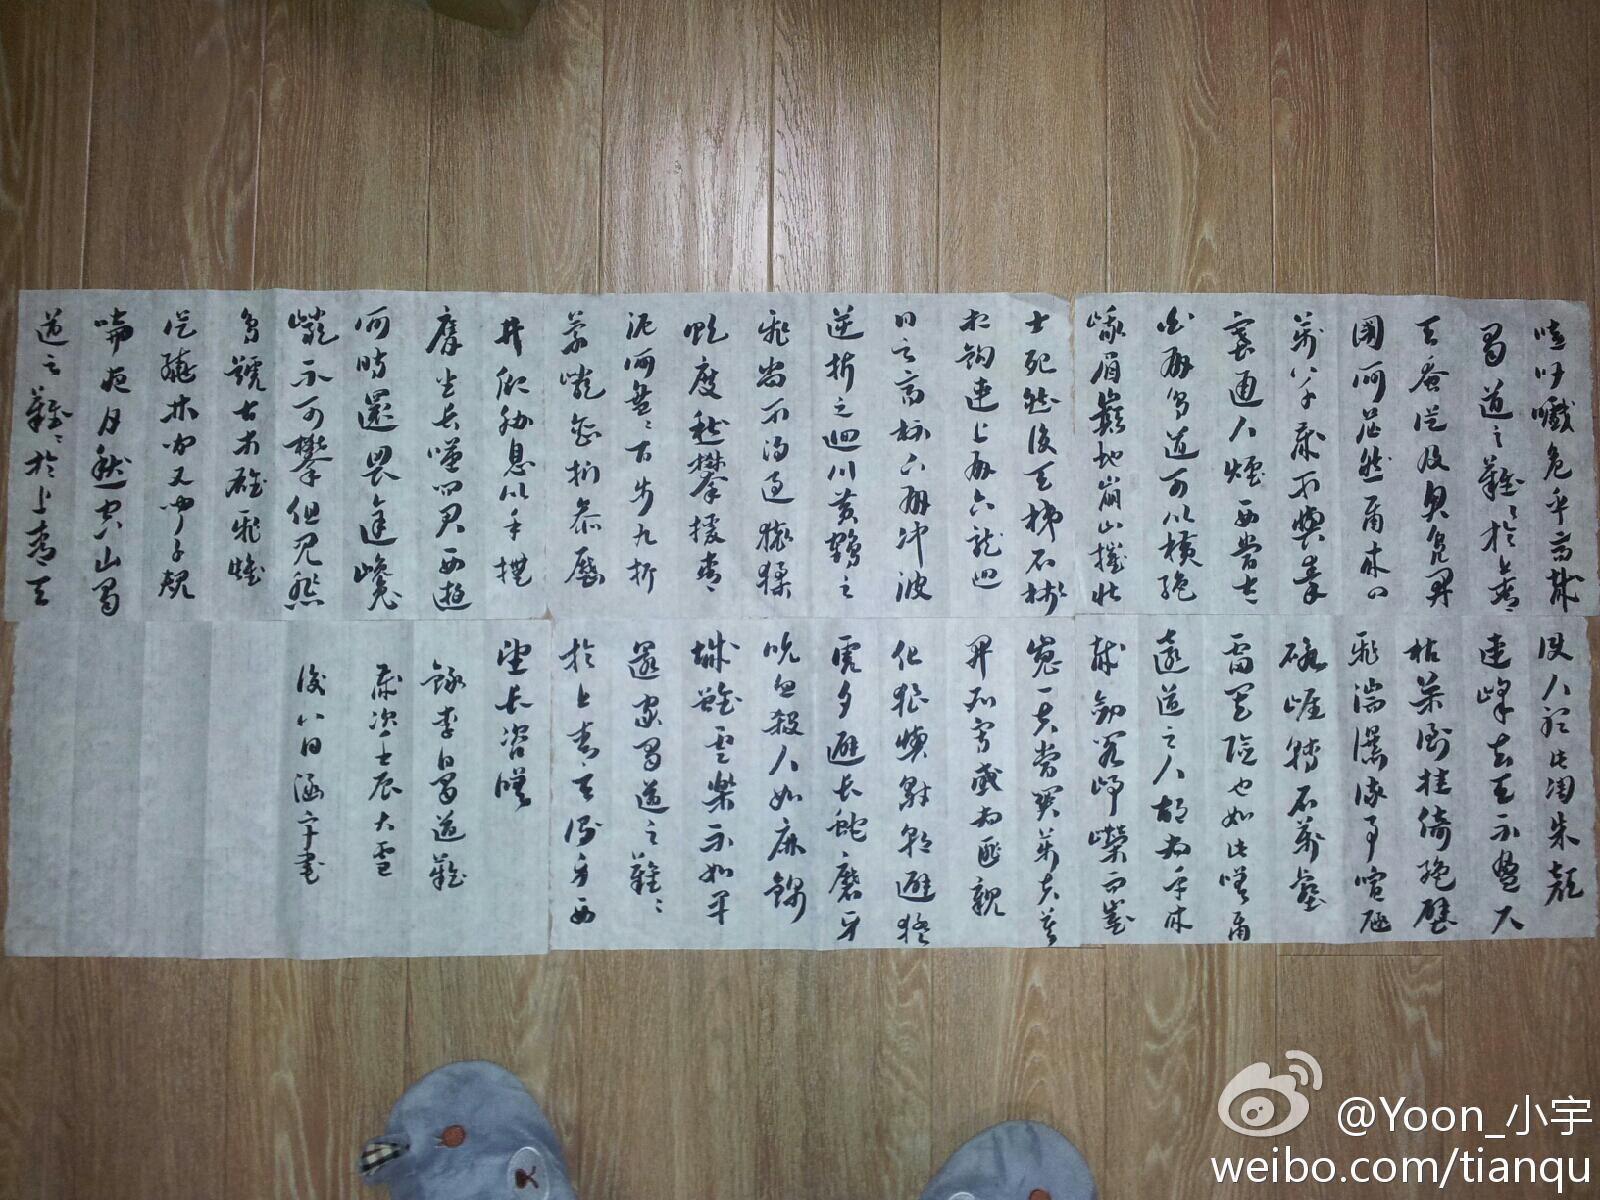 噫吁嚱危乎高哉
蜀道之難〻於上青
天蚕從及魚鳧開
國何茫然爾來四
萬八千歲不與秦
塞通人煙西當太
白有鳥道可以橫絕
峨眉巔地崩山摧壯
士死然後天梯石棧
相鈎連上有六龍迴
日之高標下有沖波
逆折之迴川黃鶴之
飛尚不得過猿猱
欲度愁攀援青
泥何盤〻百步九折
縈巖巒捫參歷
井仰脅息以手撫
膺坐長嘆問君西遊
何時還畏途巉
巖不可攀但見悲
鳥號古木雄飛雌
從繞林間又聞子規
啼夜月愁空山蜀
道之難〻於上青天
使人聽此凋朱顏
連峰去天不盈尺
枯松倒挂倚絕壁
飛湍瀑流爭喧豗
砯崖轉石萬壑
雷其險也如此嗟爾
遠道之人胡為乎來
哉劍閣崢嶸而崔
嵬一夫當關萬夫莫
開所守或為匪親
化狼與豺朝避猛
虎夕避長蛇磨牙
吮血殺人如麻錦
城雖云樂不如早
還家蜀道之難〻
於上青天側身西
望長咨嗟
錄李白蜀道難
歲次壬辰大雪
後八日涵宇書
@Yoon_小宇
weibo.com/tianqu